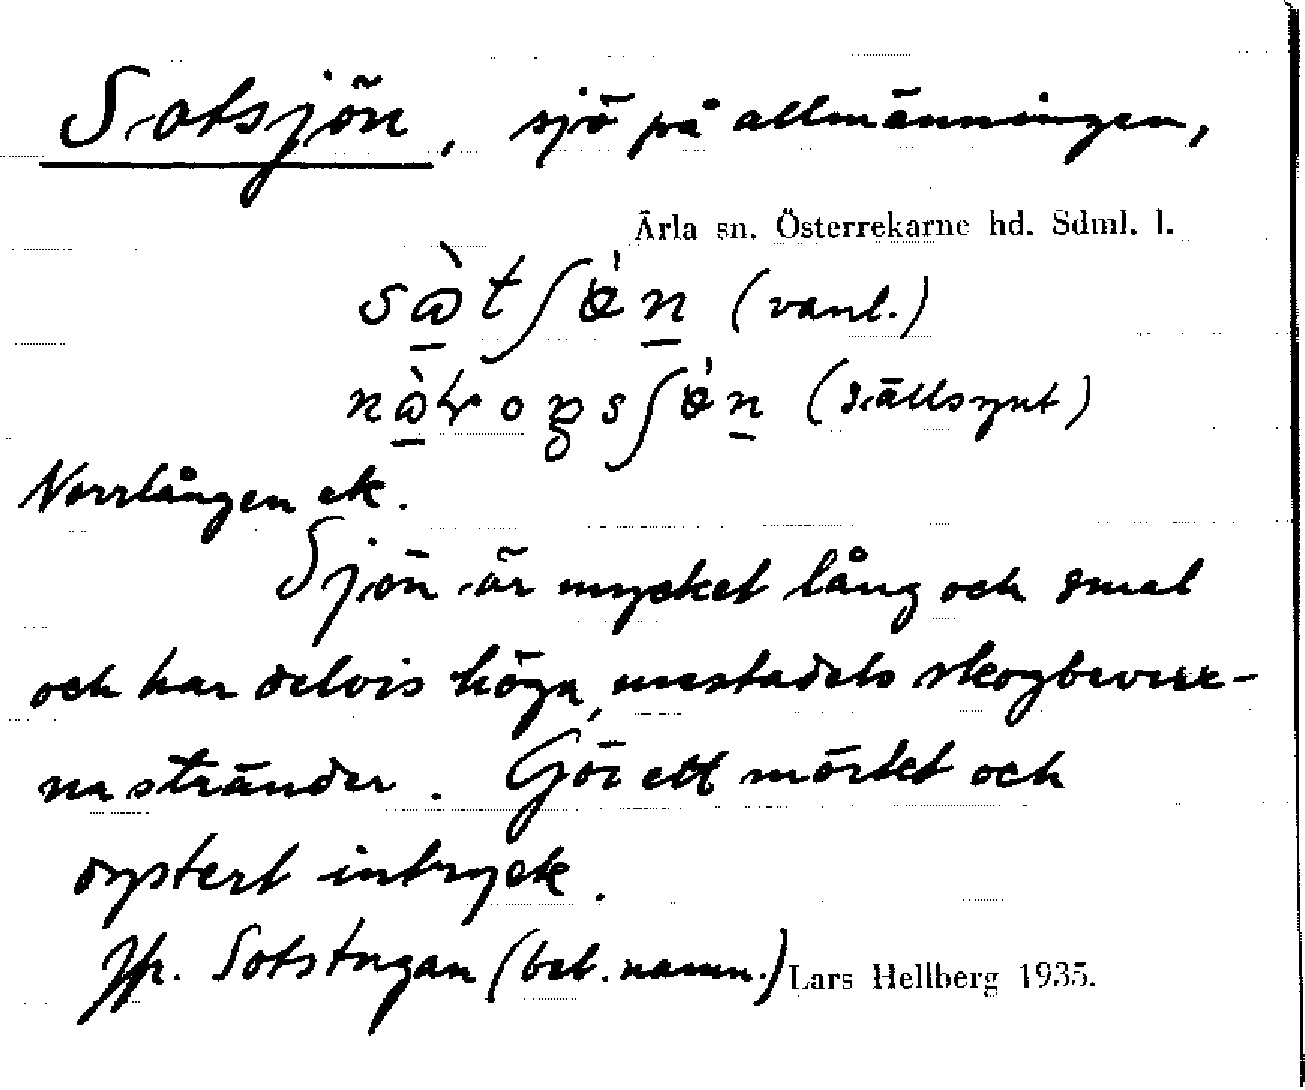 Sotsjön, sjö på allmänningen,
Ärla sn. Österrekarne hd. Sdml. l.
(vanl.)
(sällsynt)
Norrlången ek.
Sjön är mycket lång och smal
och har delvis höga, mestadels skogbevux-
na stränder. Gör ett mörkt och
dystert intryck.
Jfr. Sotstugan (beb. namn.) Lars Hellberg 1935.